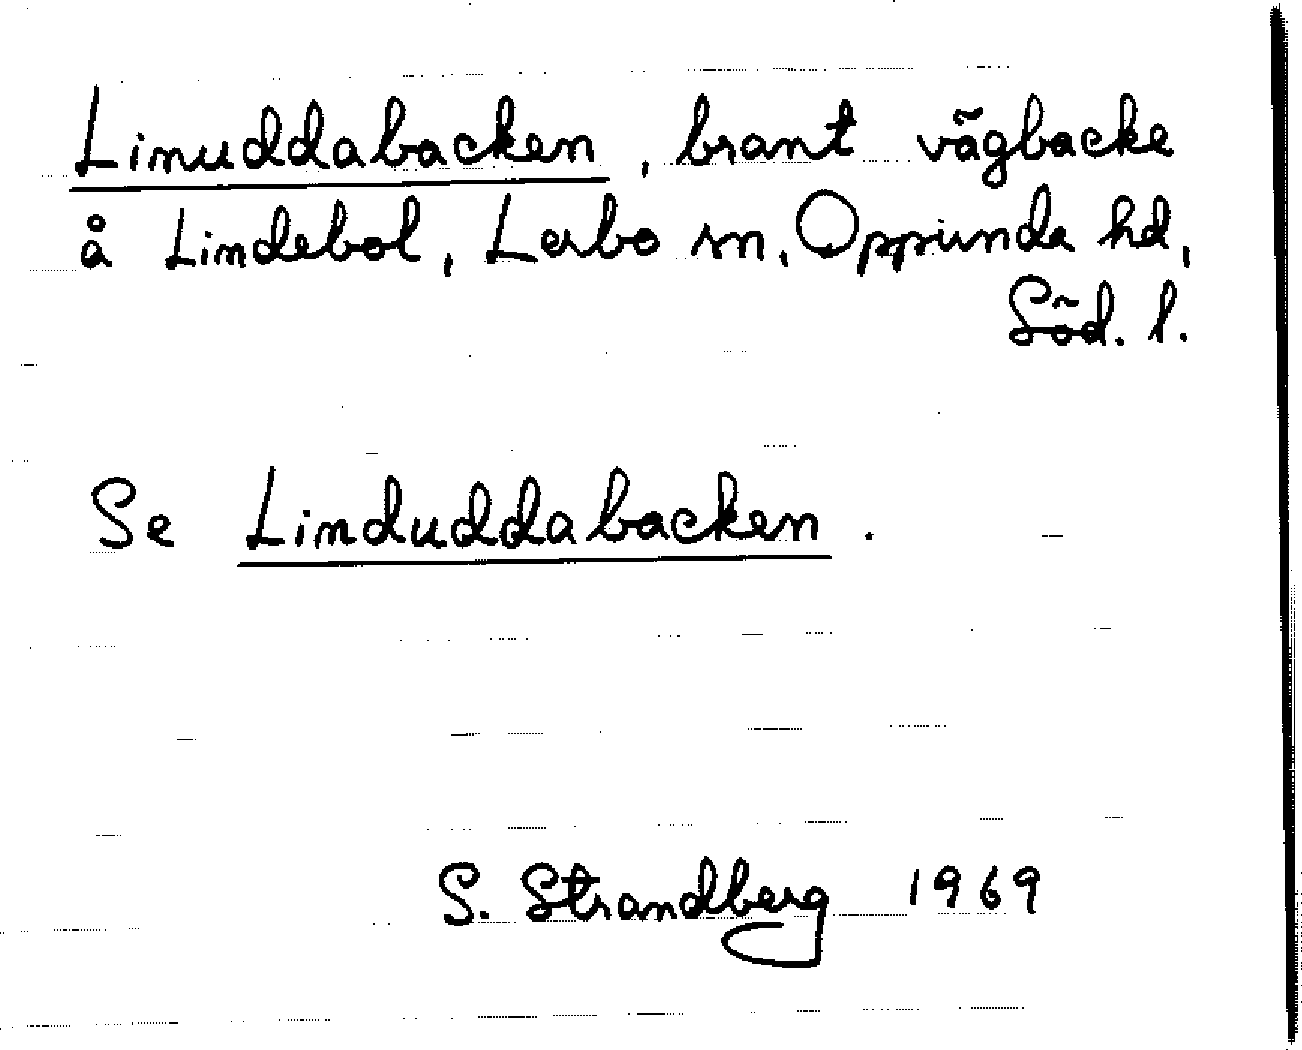 Linuddabacken, brant vägbacke
å Lindebol, Lerbo sn, Oppunda hd,
Söd. l.
Se Linduddabacken.
S. Strandberg 1969